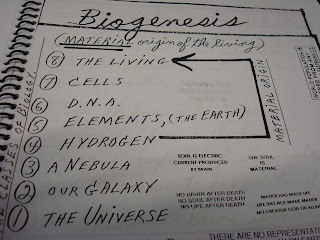 Biogenesis
(MATERIAL origin of the living)
8 THE LIVING
7 CELLS
6 D.N.A.
5 ELEMENTS, (THE EARTH)
4 HYDROGEN
3 A NEBULA
2 OUR GALAXY
1 THE UNIVERSE
MATERIAL ORIGIN
CLASSES OF BIOLOGY
SOUL IS ELECTRIC
CURRENT PRODUCED
BY BRAIN
THE SOUL
IS
MATERIAL
NO BRAIN AFTER DEATH
NO SOUL AFTER DEATH
NO LIFE AFTER DEATH
MATTER HAS MADE LIFE
LIFE HAS NOT MADE MATTER
NO CREATOR GOD OR
THERE ARE NO